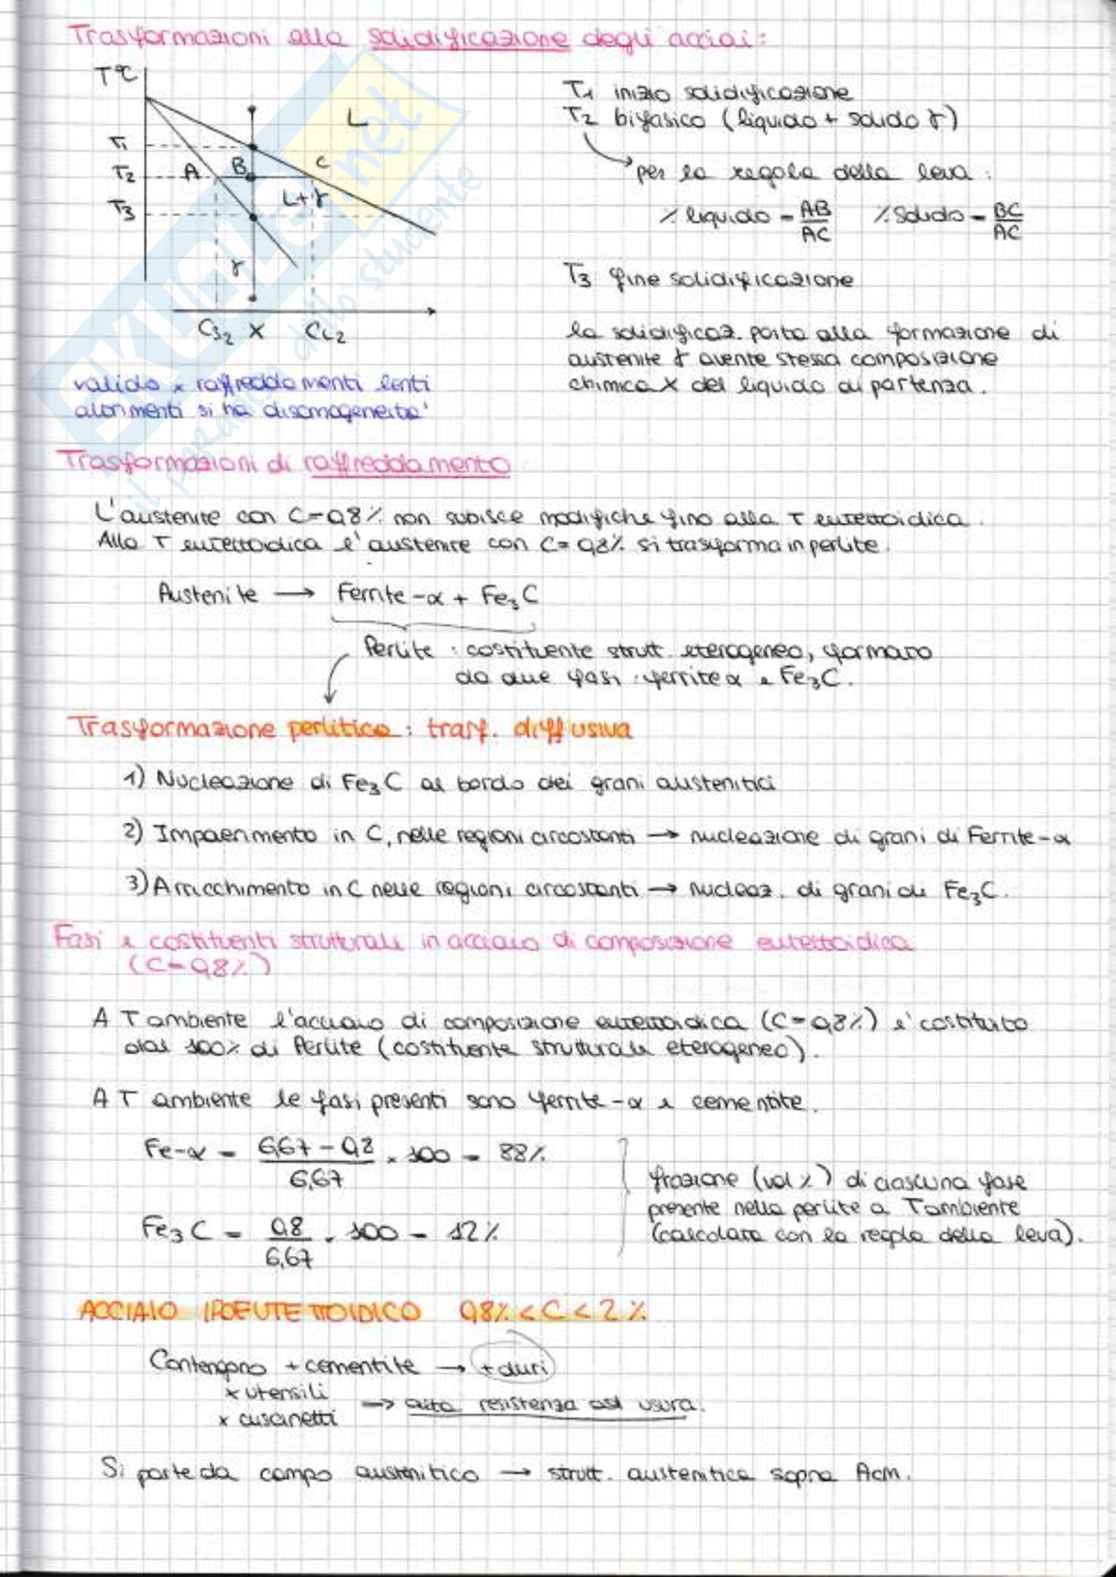 Trasformazioni alla solidificazione degli acciai:
T°C
T1
T2
T3
A
B
C
L
L+γ
γ
Cs2 X CL2
T1 inizio solidificazione
T2 bifasico (liquido + solido γ)
per la regola della leva:
% liquido = AB/AC % Solido = BC/AC
T3 fine solidificazione
la solidificaz. porta alla formazione di
austenite γ avente stessa composizione
chimica X del liquido di partenza.
valido x raffreddamenti lenti
altrimenti si ha disomogeneita'
Trasformazioni di raffreddamento
L'austenite con C=0,8% non subisce modifiche fino alla T eutettoidica.
Alla T eutettoidica l'austenite con C=0,8% si trasforma in perlite.
Austenite → Ferrite-α + Fe3C
Perlite: costituente strutt. eterogeneo, formato
da due fasi: ferrite α e Fe3C.
Trasformazione perlitica: trasf. diffusiva
1) Nucleazione di Fe3C al bordo dei grani austenitici
2) Impoverimento in C, nelle regioni circostanti → nucleazione di grani di Ferrite-α
3) Arricchimento in C nelle regioni circostanti → nucleaz. di grani di Fe3C.
Fasi e costituenti strutturali in acciaio di composizione eutettoidica
(C=0,8%)
A T ambiente l'acciaio di composizione eutettoidica (C=0,8%) e' costituito
dal 100% di Perlite (costituente strutturale eterogeneo).
A T ambiente le fasi presenti sono ferrite-α e cementite.
Fe-α = 6,67-0,8/6,67 . 100 = 88%
Fe3C = 0,8/6,67 . 100 = 12%
frazione (vol %) di ciascuna fase
presente nella perlite a T ambiente
(calcolata con la regola della leva).
ACCIAIO IPOEUTETTOIDICO 0,8% < C < 2%
Contengono + cementite → + duri
x utensili
x cuscinetti
→ alta resistenza ad usura.
Si parte da campo austenitico → strutt. austenitica sopra Acm.
SKUOLA.net
il paradiso dello studente